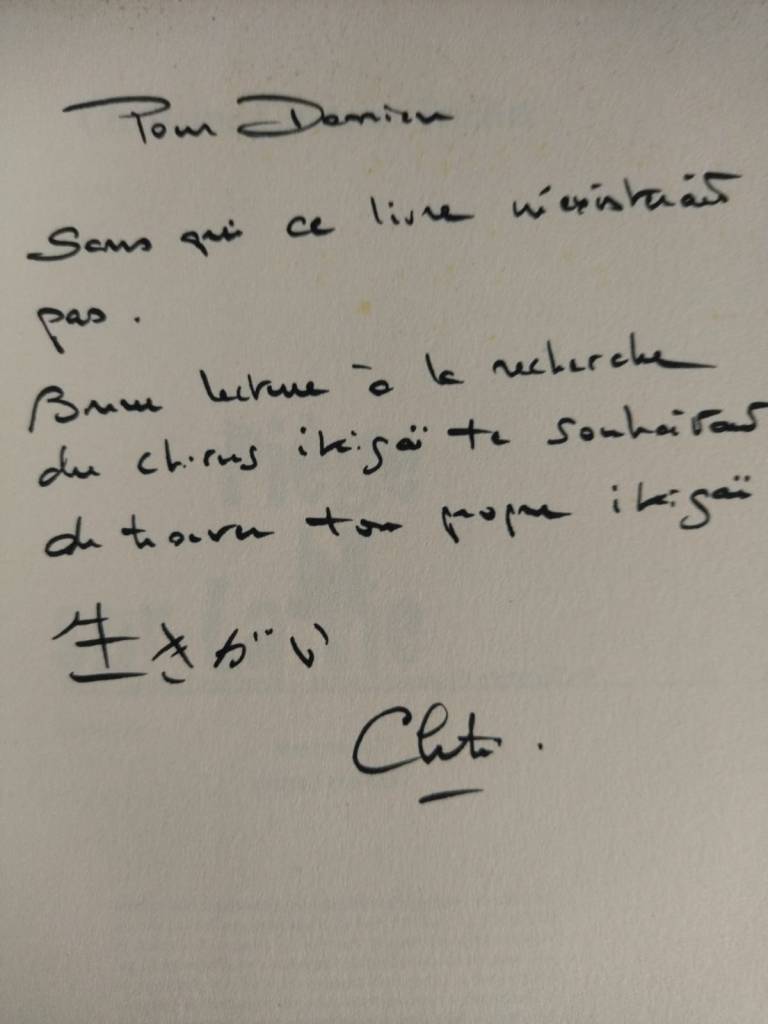 Pour Damien
Sans qui ce livre n'existerait
pas.
Bonne lecture à la recherche
du chinois ikigaï te souhaitant
de trouver ton propre ikigaï
生きがい